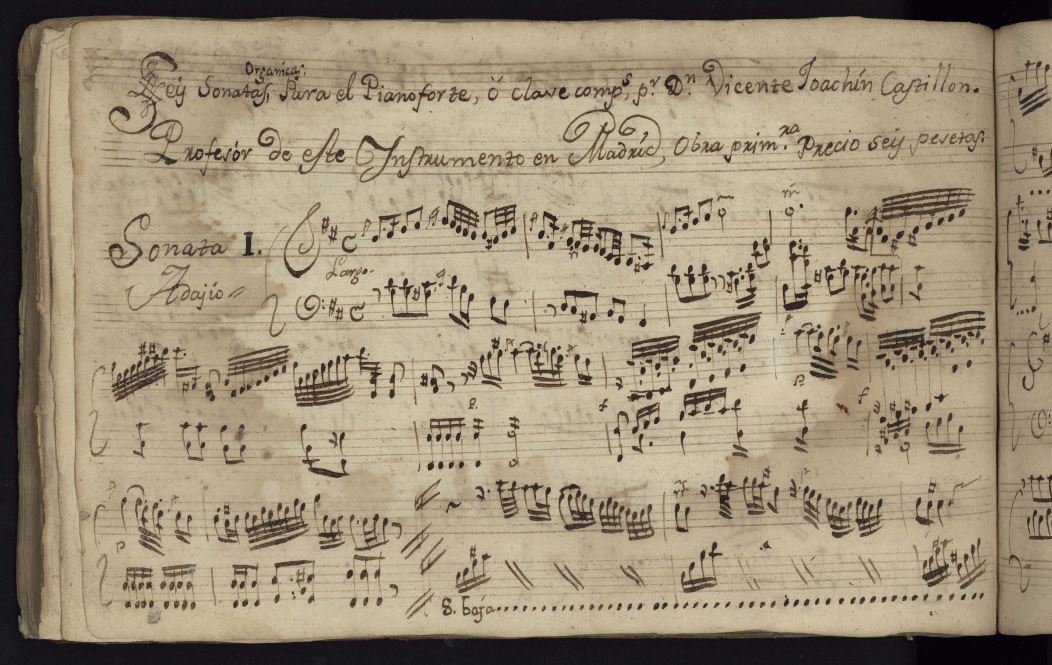 Organicas,
Seys Sonatas, Para el Pianoforte, ò clave comp.s p.r D.n Vicente Joachin Castillon.
Profesór de este Instrumento en Madrid, Obra prim.ra Precio seys pesetas.
Sonata I.
Largo.
Adajio
8. baja